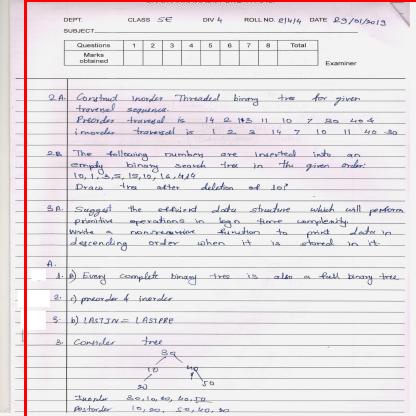 DEPT. CLASS SE DIV 4 ROLL NO. 21414 DATE 29/01/2019
SUBJECT
Questions 1 2 3 4 5 6 7 8 Total
Marks obtained
Examiner
2A. Construct inorder Threaded binary tree for given
traversal sequence.
Preorder traversal is 14 2 1 3 11 10 7 30 40
inorder traversal is 1 2 3 14 7 10 11 40 30
2B. The following number are inserted into an
empty binary search tree in the given order:
10, 1, 3, 5, 15, 10, 16,
Draw tree after deletion of 10?
3A. Suggest the efficient data structure which will perform
primitive operations in logn time complexity.
Write a nonrecursive function to print data in
descending order when it is stored in it.
A.
1. a) Every complete binary tree is also a full binary tree
2. c) preorder & inorder
3. b) LASTIN = LASTPRE
3. Consider tree
30
10 40
20 50
Inorder 20, 10, 30, 40, 50
Postorder 10, 20, 50, 40, 30